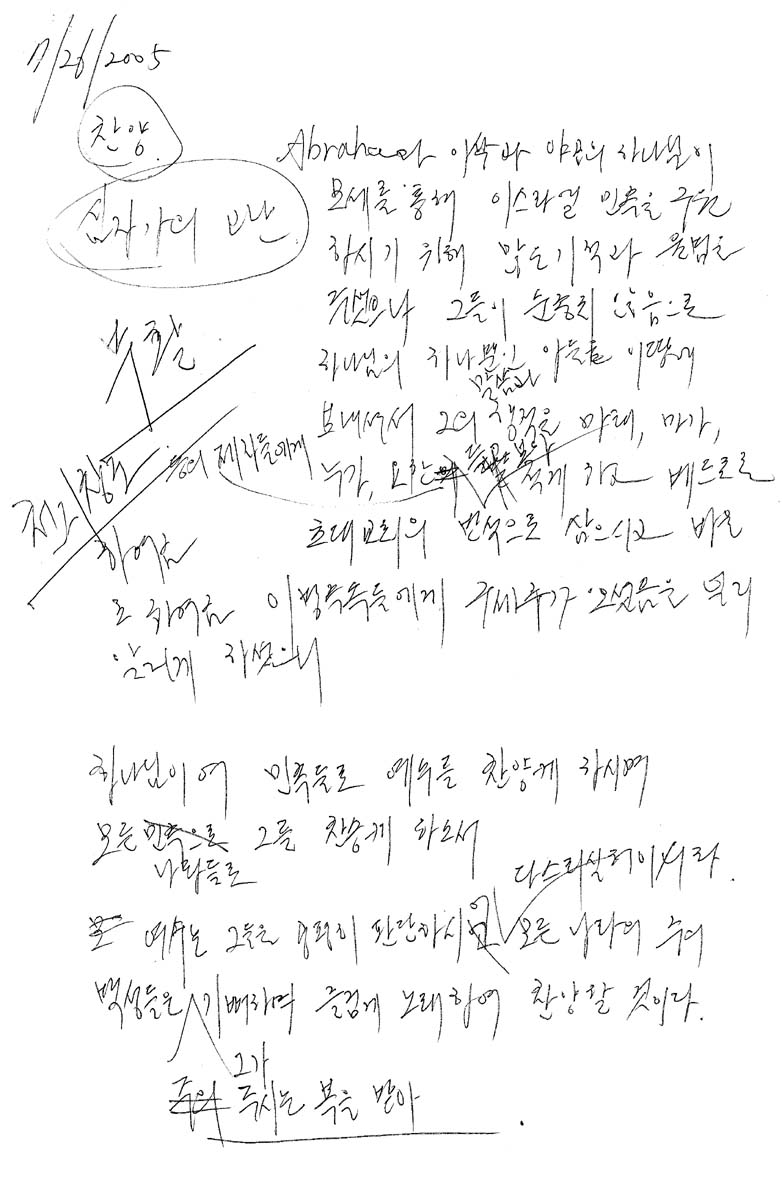 7/26/2005
찬양
십자가의 고난
Abraham과 이삭과 야곱의 하나님이
모세를 통해 이스라엘 민족을 구원
하시기 위해 많은 기적과 율법을
주셨으나 그들이 순종치 않음으로
하나님의 하나뿐인 아들을 이땅에
말씀과
보내셔서 그의 행적을 마태, 마가,
등의 제자들에게
누가, 요한 적게 하고 베드로를
초대교회의 반석으로 삼으시고 바울
하여금
로 하여금 이방족속들에게 구세주가 오셨음을 널리
알리게 하셨으니
하나님이여 민족들로 예수를 찬양케 하시며
모든 민족으로 그를 찬송케 하소서
나라들로
다스리실 터이시라.
예수는 그들을 공평히 판단하시 모든 나라의
백성들은 기뻐하며 즐겁게 노래하여 찬양할 것이다.
그가
주의 주시는 복을 받아